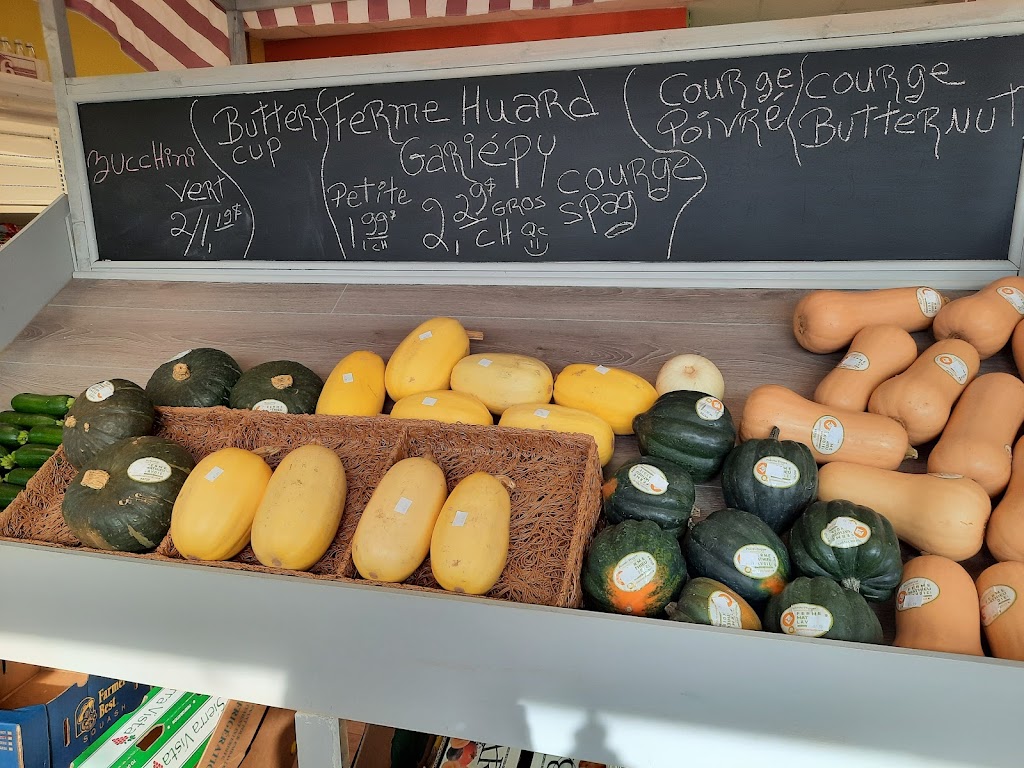 Zucchini
vert
2/1,19¢
Butter-
cup
Ferme Huard
Gariépy
Petite
1,99$
ch
2,29$ GROS
CH QC
courge
spag
Courge
Poivré
courge
Butternut
Farmer's
Best
SQUASH
Sierra Vista
Sierra Vista